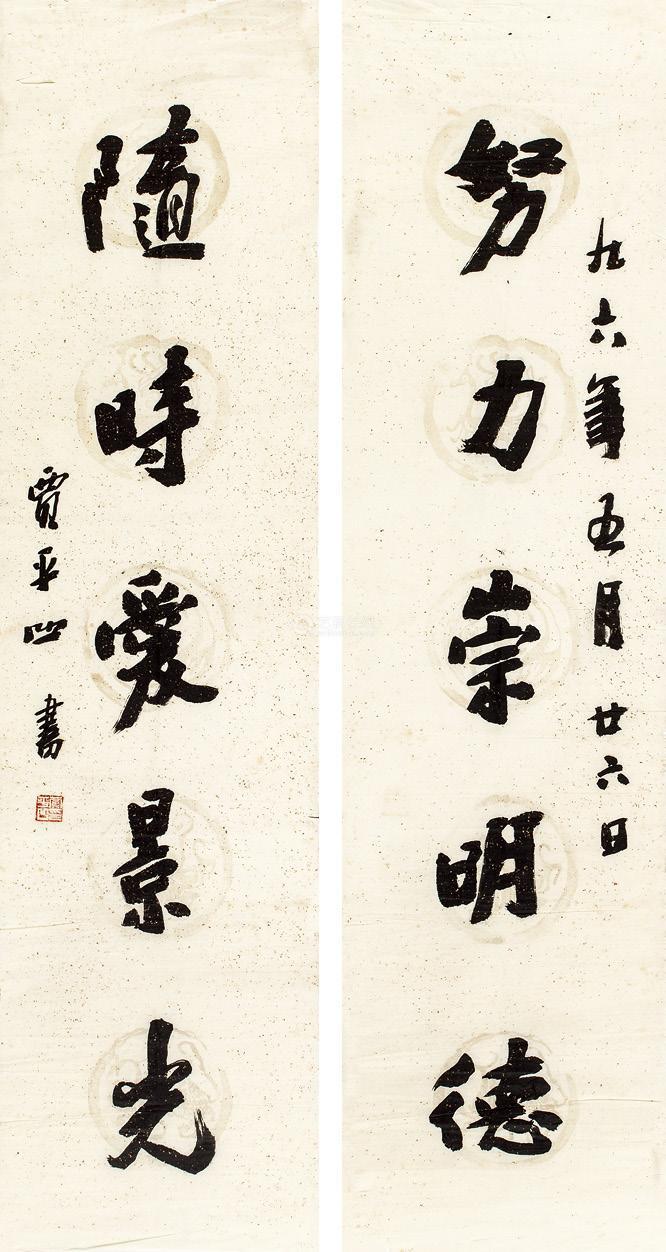 九六年五月廿六日
努力崇明德
隨時愛景光
賈平凹書